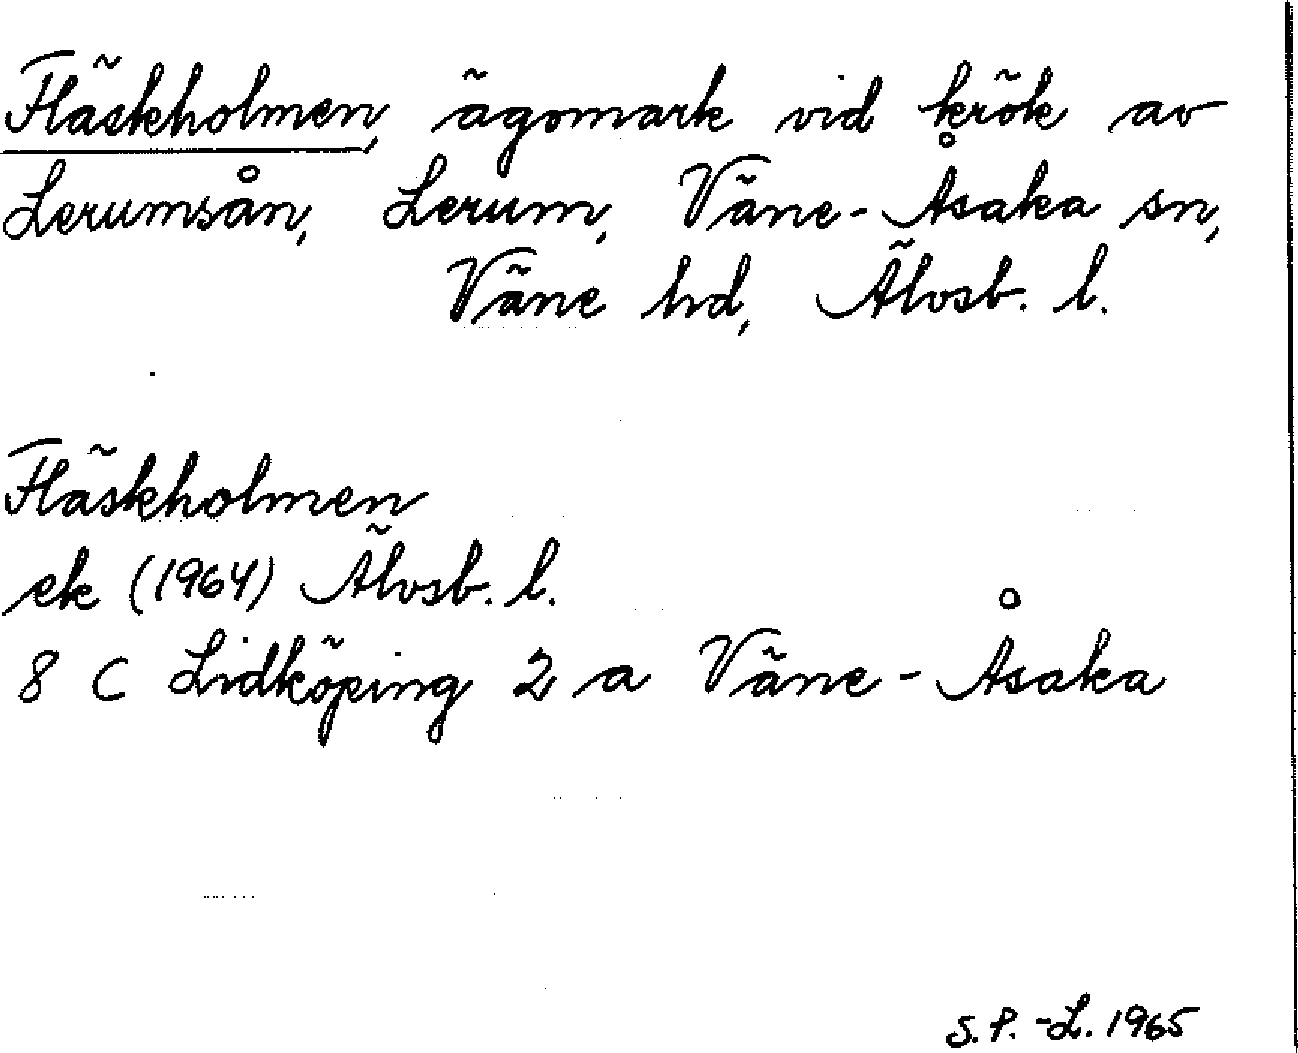 Fläskholmen, ägomark vid krök av
Lerumsån, Lerum, Väne-Åsaka sn,
Väne hd, Älvsb. l.
Fläskholmen
ek (1964) Älvsb. l.
8 C Lidköping 2 a Väne-Åsaka
S.P.-L. 1965